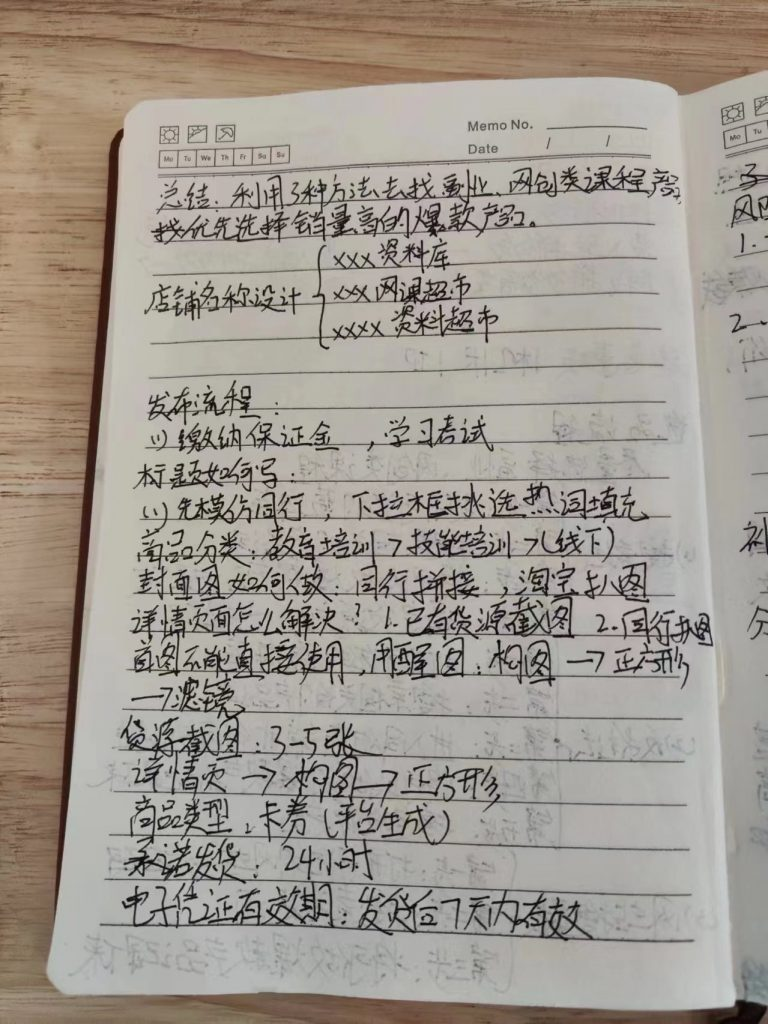 Memo No.
Date / /
Mo Tu We Th Fr Sa Su
总结：利用3种方法去找副业、网创类课程产品，
找优先选择销量高的爆款产品。
店铺名称设计
xxx 资料库
xxx 网课超市
xxxx 资料超市
发布流程：
(1) 缴纳保证金，学习考试
标题如何写：
(1) 先模仿同行，下拉框挑选热词填充
商品分类：教育培训>技能培训>(线下)
封面图如何做：同行拼接，淘宝扒图
详情页面怎么解决？1.已有货源截图 2.同行扒图
首图不能直接使用，用醒图：构图→正方形
→滤镜
货源截图：3-5张
详情页→构图→正方形
商品类型：卡券(平台生成)
承诺发货：24小时
电子凭证有效期：发货后7天内有效
Mo Tu
1.
2.